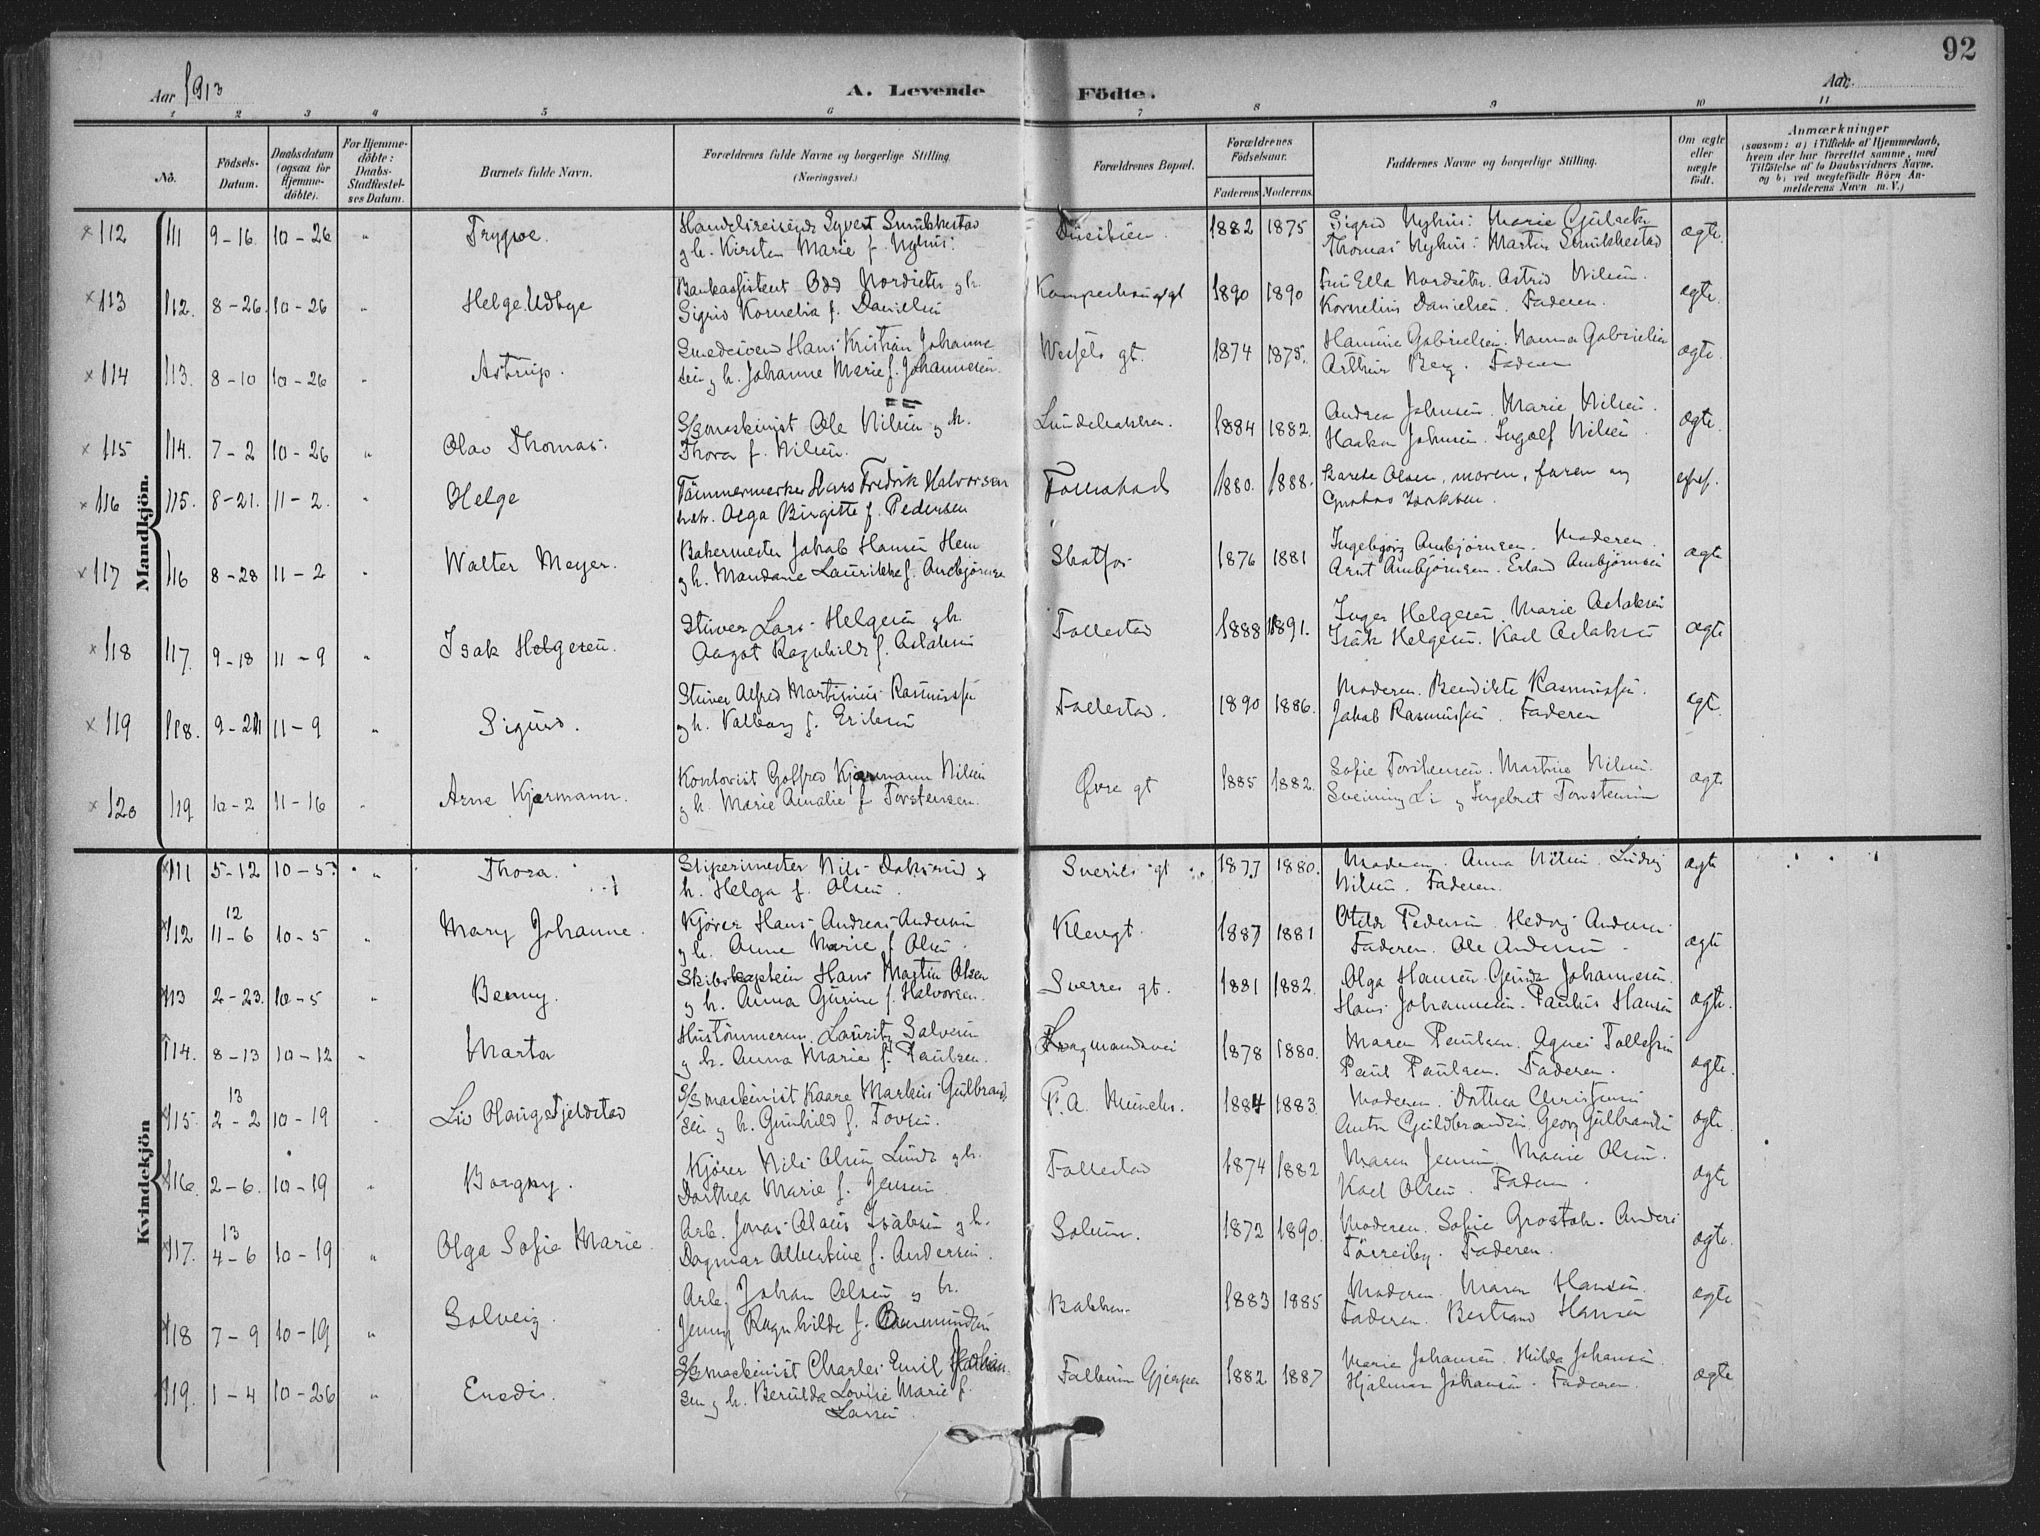 92
Aar 1913
A. Levende Födte.
Aar
1 2 3 4 5 6 7 8 9 10 11
No.
Födsels-Datum.
Daabsdatum (ogsaa for Hjemmedöbte).
For Hjemmedöbte: Daabs-Stadfæstelses Datum.
Barnets fulde Navn.
Forældrenes fulde Navne og borgerlige Stilling. (Næringsvei.)
Forældrenes Bopæl.
Forældrenes Födselsaar.
Faderens Moderens.
Faddernes Navne og borgerlige Stilling.
Om ægte eller uægte født.
Anmærkninger
(saasom: a) i Tilfælde af Hjemmedaab,
hvem der har forrettet samme, med
Tilföielse af to Daabsvidners Navne,
og b) ved uægtefödte Börn An-
melderens Navn m. V.)
Mandkjön.
× 112 111 9-16 10-26 " Trygve.
Kirsten Marie f. Nyhus
1882 1875
Sigrid Nyhus: Marie
Thomas Nyhus: Martin
ægte.
× 113 112. 8-26. 10-26 " Helge Udbye
Bankassistent Odd
Sigrid Kornelia f. Danielsen
1890 1890
Fru Ella Astrid Nilsen.
Kornelius Danielsen. Faderen.
ægte.
× 114 113. 8-10 10-26 " Astrup.
Smedsvend Hans Kristian Johanne
sen g h. Johanne Marie f. Johannesen.
Wessels gt.
1874 1875.
Gabrielsen. Nanna Gabrielsen
Arthur Berg. Faderen
ægte.
× 115 114. 7-2 10-26 " Olav Thomas.
S/Smaskinist Ole Nilsen g h.
Thora f. Nilsen.
1884 1882.
Andrea Johnsen. Marie Nilsen.
Haakon Johnsen. Ingolf Nilsen.
ægte.
× 116 115. 8-21. 11-2. " Helge
Tömmermerker Lars Fredrik Halvorsen
hstr. Olga Birgitte f. Pedersen
1880. 1888.
Karete Olsen, moren, faren og
Gustav Isaksen.
× 117 116 8-28 11-2 " Walter Meyer.
Bakermester Jakob Hansen Hem
g h. Mandane f.
1876 1881
Ingebjörg Ambjörnsen. Moderen.
Arnt Ambjörnsen. Erland Ambjörnsen
ægte
× 118 117. 9-18 11-9 " Isak Helgesen.
Stuver Lars Helgesen g h.
Aagot Ragnhild f. Aslaksen
Follestad
1888 1891.
Inger Helgesen. Marie Aslaksen
Isak Helgesen. Karl Aslaksen
ægte
× 119 118. 9-21 11-9 " Sigurd.
Stuver Alfred Martinius Rasmussen
g h. Valborg f. Eriksen
Follestad.
1890 1886.
Moderen. Bendikte Rasmussen.
Jakob Rasmussen. Faderen
ægt.
× 120 119 10-2 11-16 " Arne Kjærmann.
Kontorist Golfred Kjærmann Nilsen
g h. Marie Amalie f Torstensen.
Övre gt
1885 1882.
Sofie Torstensen. Martine Nilsen.
Ingebret Torstensen
ægte
Kvindekjön
×111 5-12 10-5 " Thora.
Nils
h. Helga f. Olsen.
Sverres gt.
1877 1880.
Moderen. Anna Nilsen. Ludvig
Nilsen. Faderen.
ægte
×112 12 11-6 10-5 " Mary Johanne.
Kjörer Hans Andreas Andersen
g h. Anne Marie f Olsen.
1887 1881
Pedersen. Hedvig Andersen.
Faderen. Ole Andersen.
ægte
×113 2-23. 10-5 " Benny.
Skibskaptein Hans Martin Olsen
g h. Anna Gurine f. Halvorsen.
Sverres gt.
1881 1882.
Olga Hansen. Johannesen.
Hans Johannesen. Paulus Hansen
ægte.
×114. 8-13 10-12 " Marta
Hustömmerm. Lauritz Salvesen
g h. Anna Marie f. Paulsen.
1878 1880.
Maren Paulsen. Agnes Tollefsen
Paul Paulsen. Faderen.
ægte.
×115. 13 2-2 10-19 " Liv Fjeldstad
S/Smaskinist Kaare Markus Gulbrand
sen g h. Gunhild f. Tovsen.
P. A. Munchs.
1884 1883.
Moderen. Dorthea Christensen
Anton Guldbrandsen. Georg Gulbrandsen
ægte.
×116. 2-6. 10-19 " Borgny.
Kjörer Nils Olsen Lunde g h.
Dorthea Marie f. Jensen.
Follestad
1874 1882
Maren Jensen. Marie Olsen.
Karl Olsen. Faderen.
ægte
×117. 13 4-6 10-19 " Olga Sofie Marie.
Arb. Jonas Olaus Isaksen g h.
Dagmar Albertine f. Andersen.
Solum.
1872 1890.
Moderen. Sofie Anders
Faderen.
ægte.
×118 7-9 10-19 " Solveig.
Arb. Johan Olsen g h.
Jenny Ragnhilde f.
Bakken.
1883 1885
Moderen. Maren Hansen.
Faderen. Bertrand Hansen
ægte
×119. 1-4 10-26 "
S/Smaskinist Charles Emil
sen g h. Berulda Lovise Marie f.
Larsen.
Falkum Gjerpen
1882 1887
Marie Johansen. Hilda Johansen.
Hjalmar Johansen. Faderen.
ægte